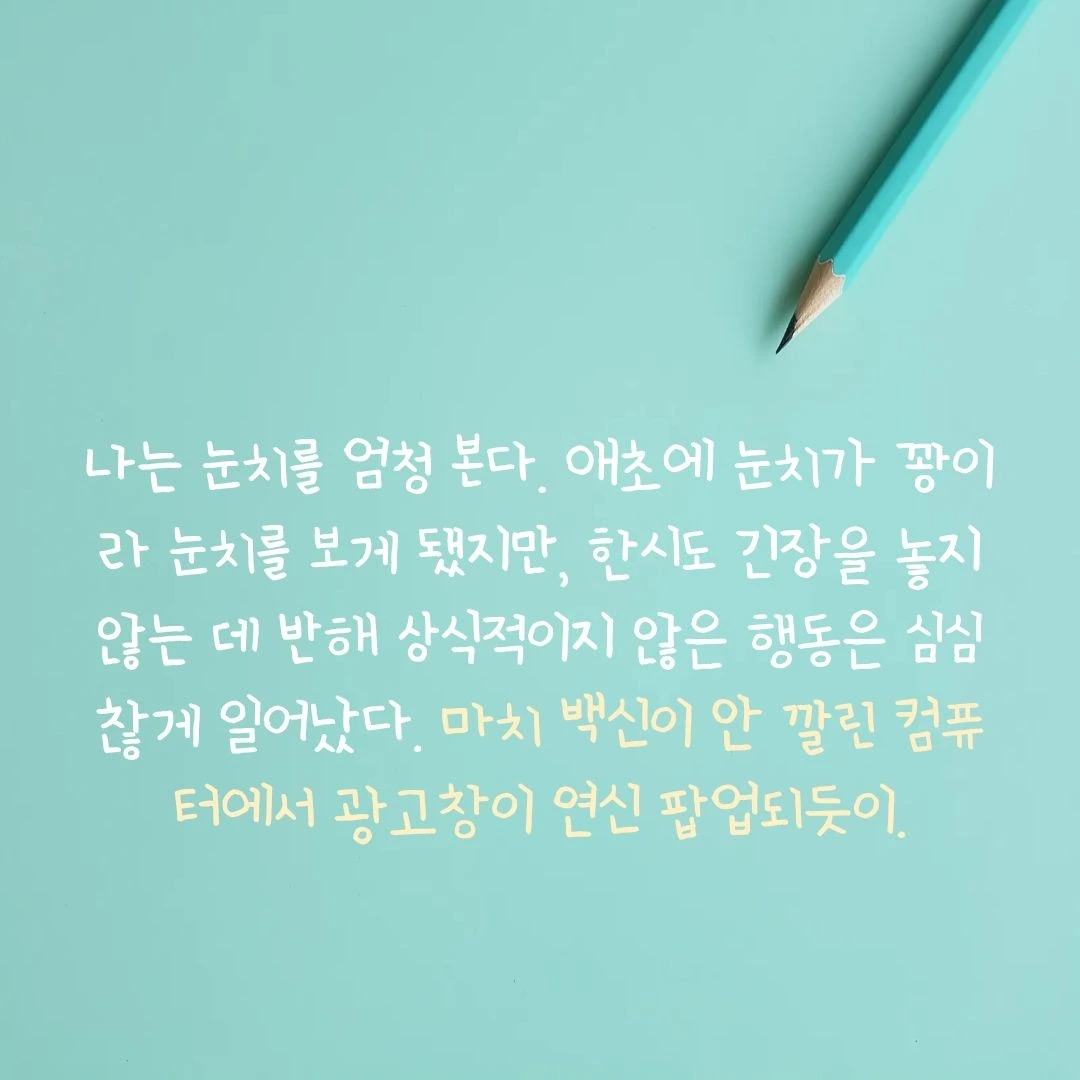 나는 눈치를 엄청 본다. 애초에 눈치가 꽝이
라 눈치를 보게 됐지만, 한시도 긴장을 놓지
않는 데 반해 상식적이지 않은 행동은 심심
찮게 일어났다. 마치 백신이 안 깔린 컴퓨
터에서 광고창이 연신 팝업되듯이.